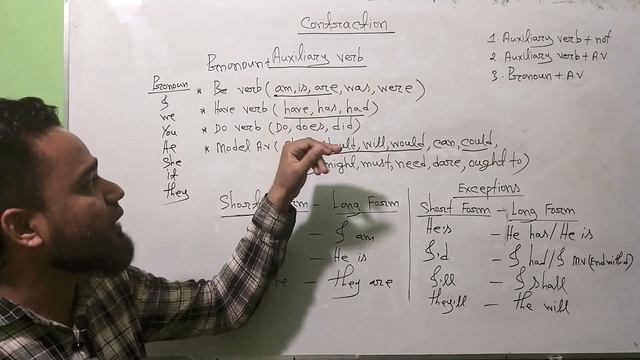 Contraction
1. Auxiliary verb + not
2. Auxiliary verb + A.V
3. Pronoun + A.V
Pronoun + Auxiliary verb
Pronoun
I
we
You
He
She
it
they
* Be verb (am, is, are, was, were)
* Have verb (have, has, had)
* Do verb (Do, does, did)
* Model AV ( will, would, can, could,
might, must, need, dare, ought to)
Short Form - Long Form
- I am
- He is
- they are
Exceptions
Short Form - Long Form
He's - He has/He is
I'd - I had/I M.V (End with d)
I'll - I shall
they'll - the will